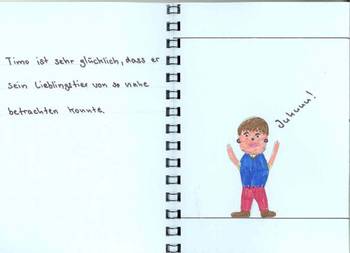 Timo ist sehr glücklich, dass er
sein Lieblingstier von so nahe
betrachten konnte.
Juhuuu!